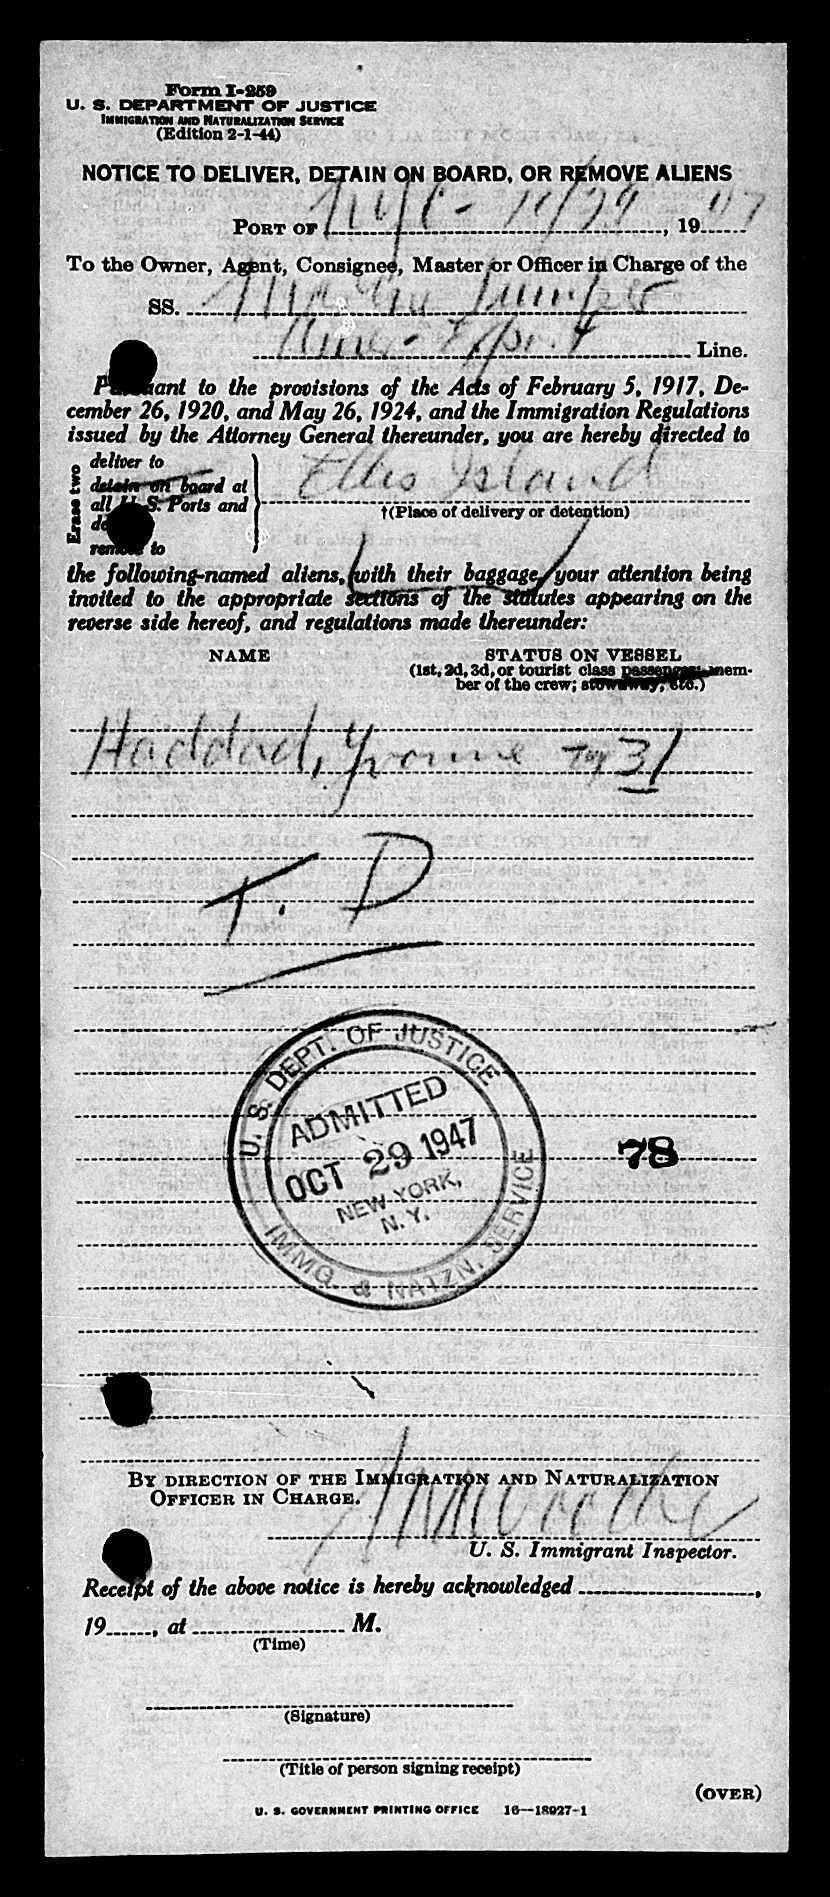 Form I-259
U. S. DEPARTMENT OF JUSTICE
IMMIGRATION AND NATURALIZATION SERVICE
(Edition 2-1-44)
NOTICE TO DELIVER, DETAIN ON BOARD, OR REMOVE ALIENS
PORT OF NYC - 10/29, 1947
To the Owner, Agent, Consignee, Master or Officer in Charge of the
SS. Marine Jumper
Amer- Export Line.
Pursuant to the provisions of the Acts of February 5, 1917, De-
cember 26, 1920, and May 26, 1924, and the Immigration Regulations
issued by the Attorney General thereunder, you are hereby directed to
Erase two
deliver to
detain on board at
all U. S. Ports and
remove to
Ellis Island
†(Place of delivery or detention)
the following-named aliens, with their baggage, your attention being
invited to the appropriate sections of the statutes appearing on the
reverse side hereof, and regulations made thereunder:
NAME STATUS ON VESSEL
(1st, 2d, 3d, or tourist class passenger; mem-
ber of the crew; stowaway, etc.)
Haddad, Yvonne 31
T. D
U. S. DEPT. OF JUSTICE
ADMITTED
OCT 29 1947
NEW YORK,
N. Y.
IMMG. & NATZN. SERVICE
78
BY DIRECTION OF THE IMMIGRATION AND NATURALIZATION
OFFICER IN CHARGE.
U. S. Immigrant Inspector.
Receipt of the above notice is hereby acknowledged ,
19 , at M.
(Time)
(Signature)
(Title of person signing receipt)
(OVER)
U. S. GOVERNMENT PRINTING OFFICE 16—18027-1